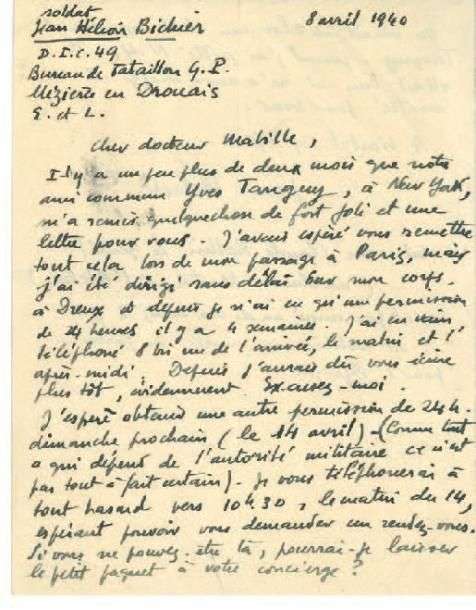 soldat
Jean Hélion Bichier
8 avril 1940
D.I.C. 49
Bureau de Bataillon G.P.
Mézières en Drouais
E. et L.
Cher docteur Mabille,
Il y a un peu plus de deux mois que notre
ami commun Yves Tanguy, à New York,
m'a remis quelquechose de fort joli et une
lettre pour vous. J'avais espéré vous remettre
tout cela lors de mon passage à Paris, mais
j'ai été dirigé sans délai sur mon corps.
à Dreux et depuis je n'ai eu qu'une permission
de 24 heures il y a 4 semaines. J'ai en vain
téléphoné 8 bis rue de l'arrivée, le matin et l'
après-midi. Depuis j'aurais dû vous écrire
plus tôt, évidemment. Excusez-moi.
J'espère obtenir une autre permission de 24h.
dimanche prochain (le 14 avril) (Comme tout
ce qui dépend de l'autorité militaire ce n'est
pas tout à fait certain). Je vous téléphonerai à
tout hasard vers 10h30, le matin du 14,
espérant pouvoir vous demander un rendez-vous.
Si vous ne pouvez être là, pourrai-je laisser
le petit paquet à votre concierge?